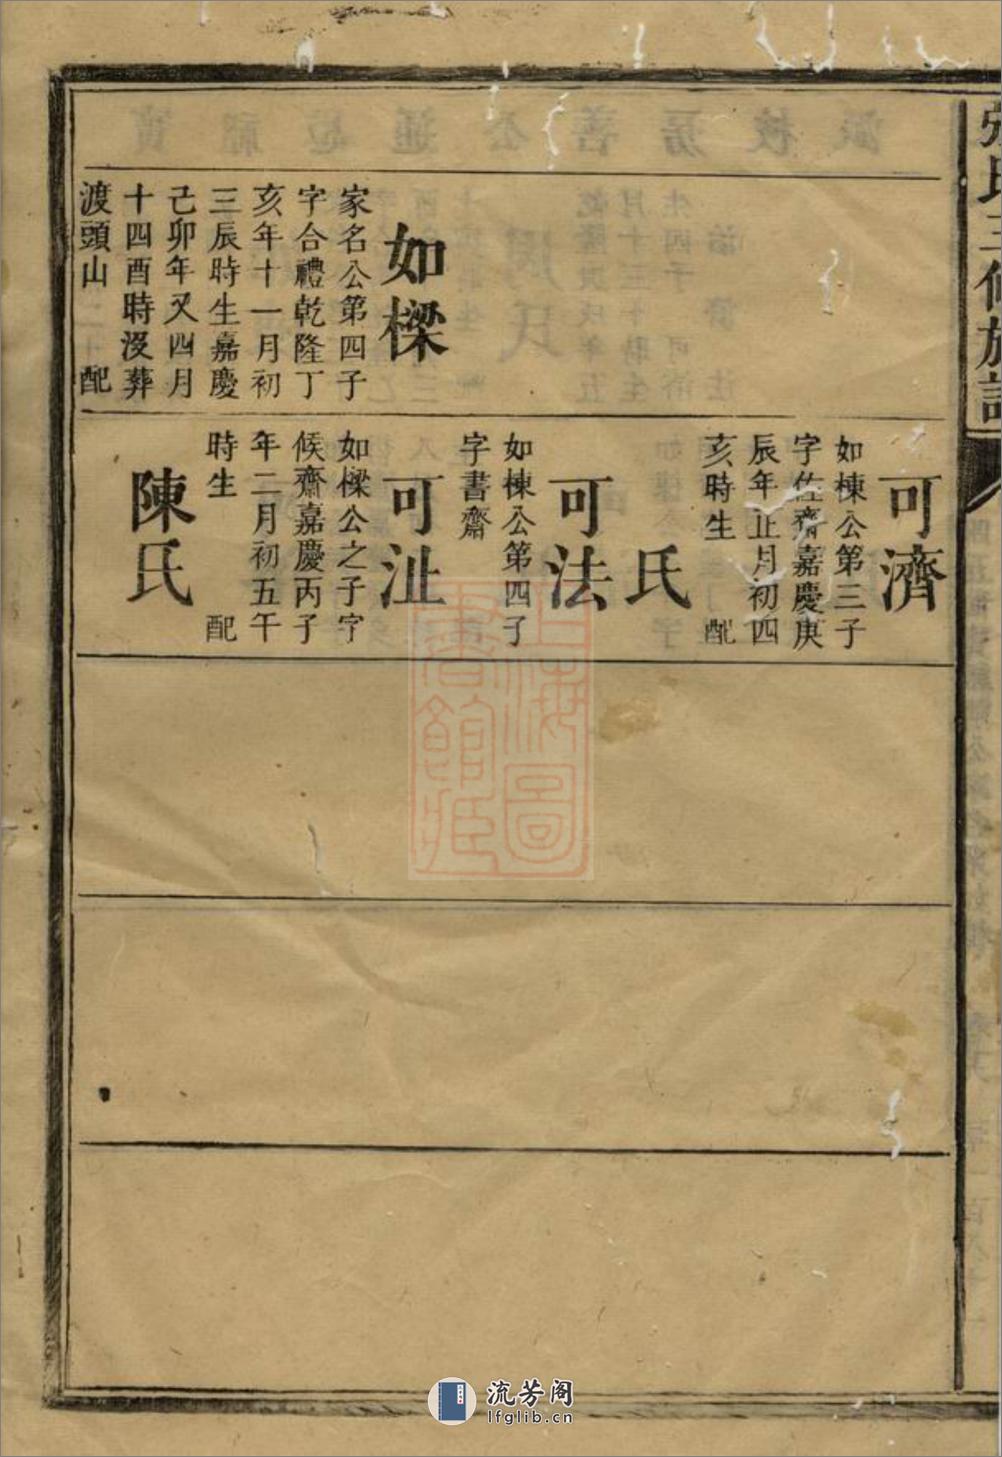 張氏三修族譜
如樑
家名公第四子
字合禮乾隆丁
亥年十一月初
三辰時生嘉慶
己卯年又四月
十四酉時沒葬
渡頭山 配
可濟
如棟公第三子
字佐齋嘉慶庚
辰年正月初四
亥時生 配
氏
可法
如棟公第四子
字書齋
可沚
如樑公之子字
候齋嘉慶丙子
年二月初五午
時生 配
陳氏
上海圖
書館藏
流芳阁
lfglib.cn